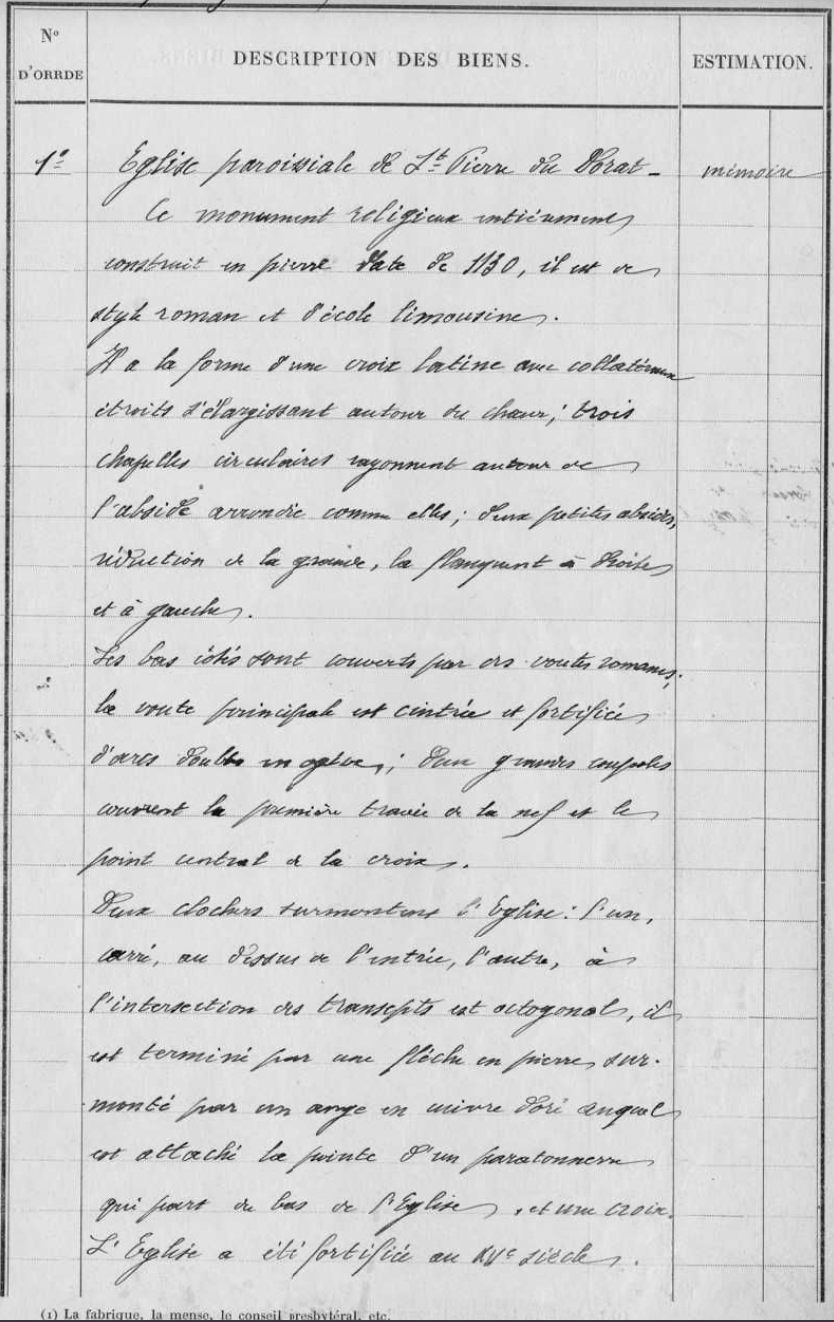 N° D'ORRDE
DESCRIPTION DES BIENS.
ESTIMATION.
1°
Eglise paroissiale de St Pierre du Dorat -
mémoire
Ce monument religieux entièrement
construit en pierre date de 1130, il est de
style roman et d'école limousine.
Il a la forme d'une croix latine avec collatéraux
étroits s'élargissant autour du chœur; trois
chapelles circulaires rayonnent autour de
l'abside arrondie comme elles; deux petites absides,
réduction de la grande, la flanquent à droite
et à gauche.
Les bas côtés sont couverts par des voutes romanes;
la voute principale est cintrée et fortifiée
d'arcs doubl en ogive; deux grandes coupoles
couvrent la première travée de la nef et le
point central de la croix.
Deux clochers surmontent l'Eglise: l'un,
carré, au dessus de l'entrée, l'autre, à
l'intersection des transepts est octogonal, il
est terminé par une flèche en pierre sur-
monté par un ange en cuivre doré auquel
est attaché la pointe d'un paratonnerre
qui part du bas de l'Eglise, et une croix.
L'Eglise a été fortifiée au XVe siècle.
(1) La fabrique, la mense, le conseil presbytéral, etc.